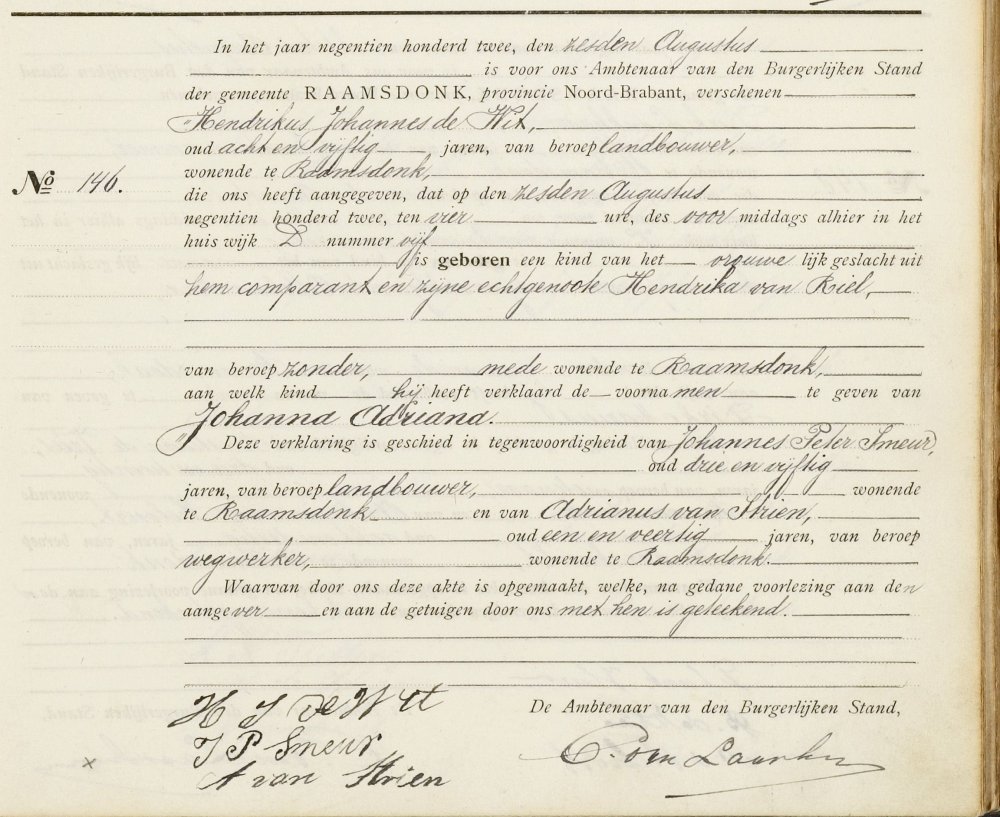 In het jaar negentien honderd twee, den zesden Augustus
is voor ons Ambtenaar van den Burgerlijken Stand
der gemeente RAAMSDONK, provincie Noord-Brabant, verschenen
Hendrikus Johannes de Wit,
oud acht en vijftig jaren, van beroep landbouwer,
wonende te Raamsdonk,
No 146.
die ons heeft aangegeven, dat op den zesden Augustus
negentien honderd twee, ten vier ure, des voor middags alhier in het
huis wijk D nummer vijf
is geboren een kind van het vrouwe lijk geslacht uit
hem comparant en zijne echtgenoote Hendrika van Riel,
van beroep zonder, mede wonende te Raamsdonk,
aan welk kind hij heeft verklaard de voornamen te geven van
Johanna Adriana.
Deze verklaring is geschied in tegenwoordigheid van Johannes Peter Smeur,
oud drie en vijftig
jaren, van beroep landbouwer, wonende
te Raamsdonk en van Adrianus van Strien,
oud een en veertig jaren, van beroep
wegwerker, wonende te Raamsdonk.
Waarvan door ons deze akte is opgemaakt, welke, na gedane voorlezing aan den
aangever en aan de getuigen door ons met hen is geteekend.
H J de Wit
De Ambtenaar van den Burgerlijken Stand,
J P Smeur
x A van Strien